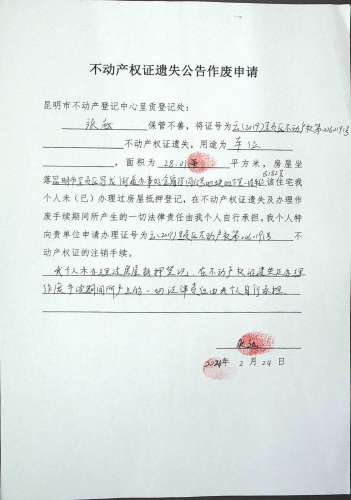 不动产权证遗失公告作废申请
昆明市不动产登记中心呈贡登记处:
张 保管不善,将证号为云(2019)呈贡区不动产权第
不动产权证遗失,用途为车位
,面积为 28.01 平方米,房屋坐
落昆明市呈贡区 街道办事处 该住宅我
个人未(已)办理过房屋抵押登记。在不动产权证遗失及办理作
废手续期间所产生的一切法律责任由我个人自行承担。我个人特
向贵单位申请办理证号为云(2019)呈贡区不动产权第 不
动产权证的注销手续。
我个人未办理过房屋抵押登记,在不动产权证遗失及办理
作废手续期间所产生的一切法律责任由我个人自行承担.
2024年 2 月 24 日